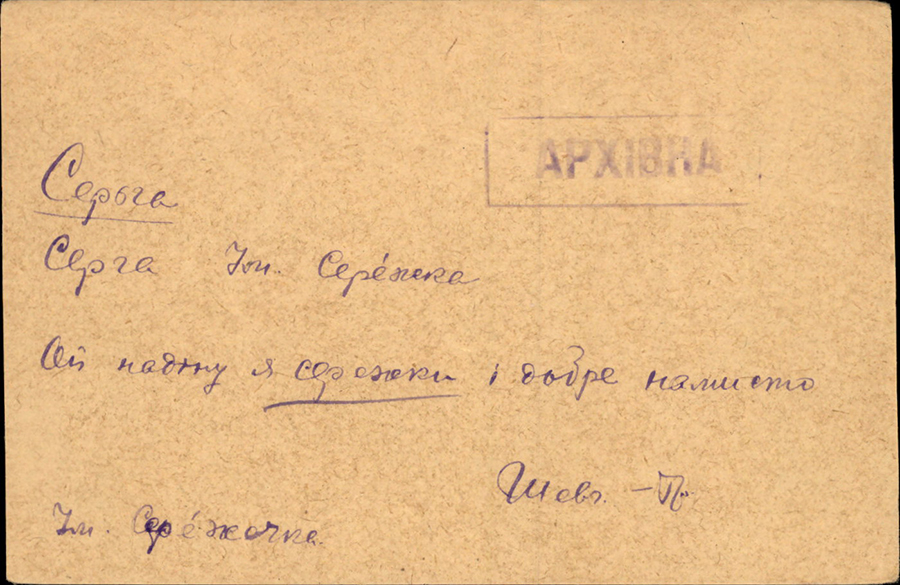 АРХІВНА
Серьга
Серга Ум. Сере́жка
Ой надіну я сережки і добре намисто
Шевч. –
Ум. Сере́жечка.